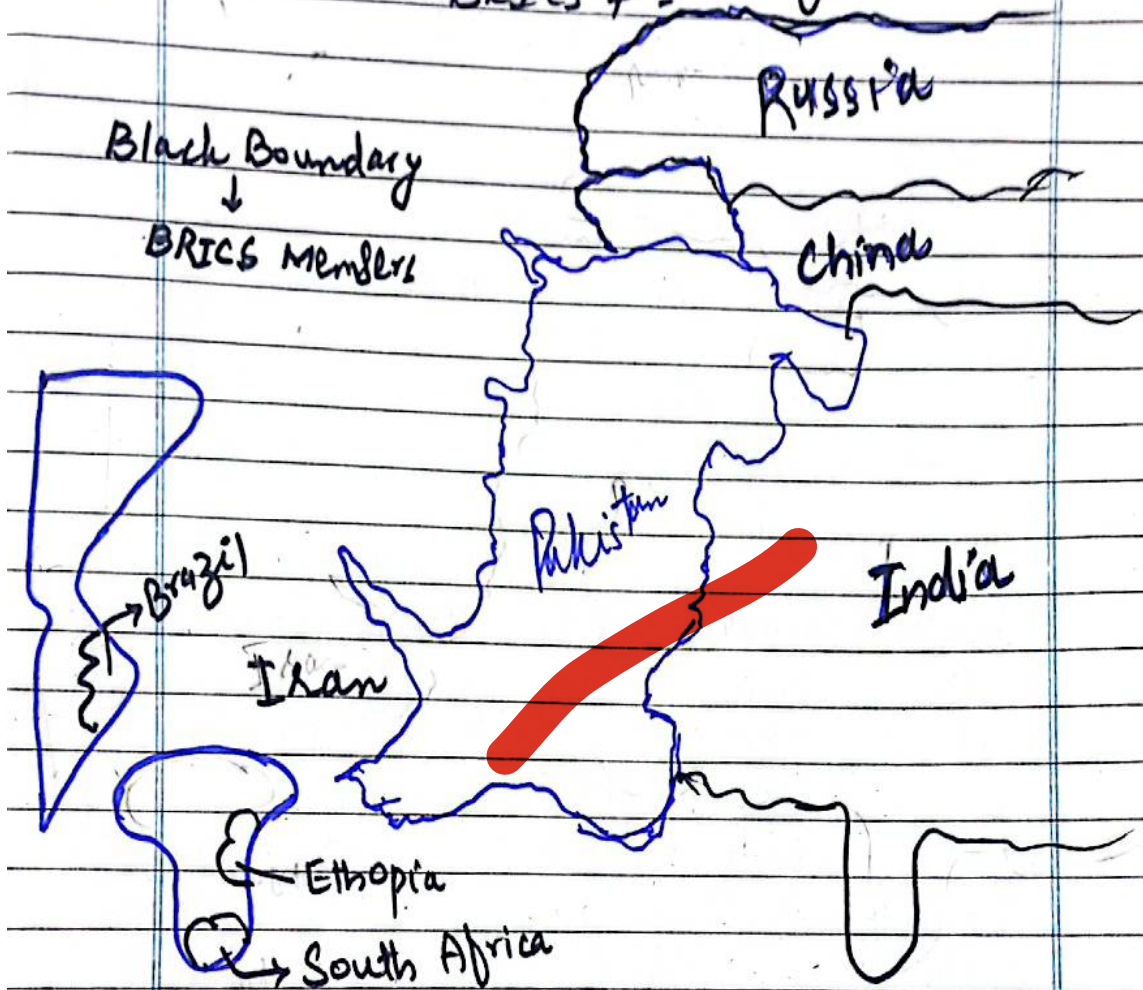 BRICS +
Russia
Black Boundary
↓
BRICS Members
China
Pakistan
Brazil
India
Iran
Ethopia
South Africa